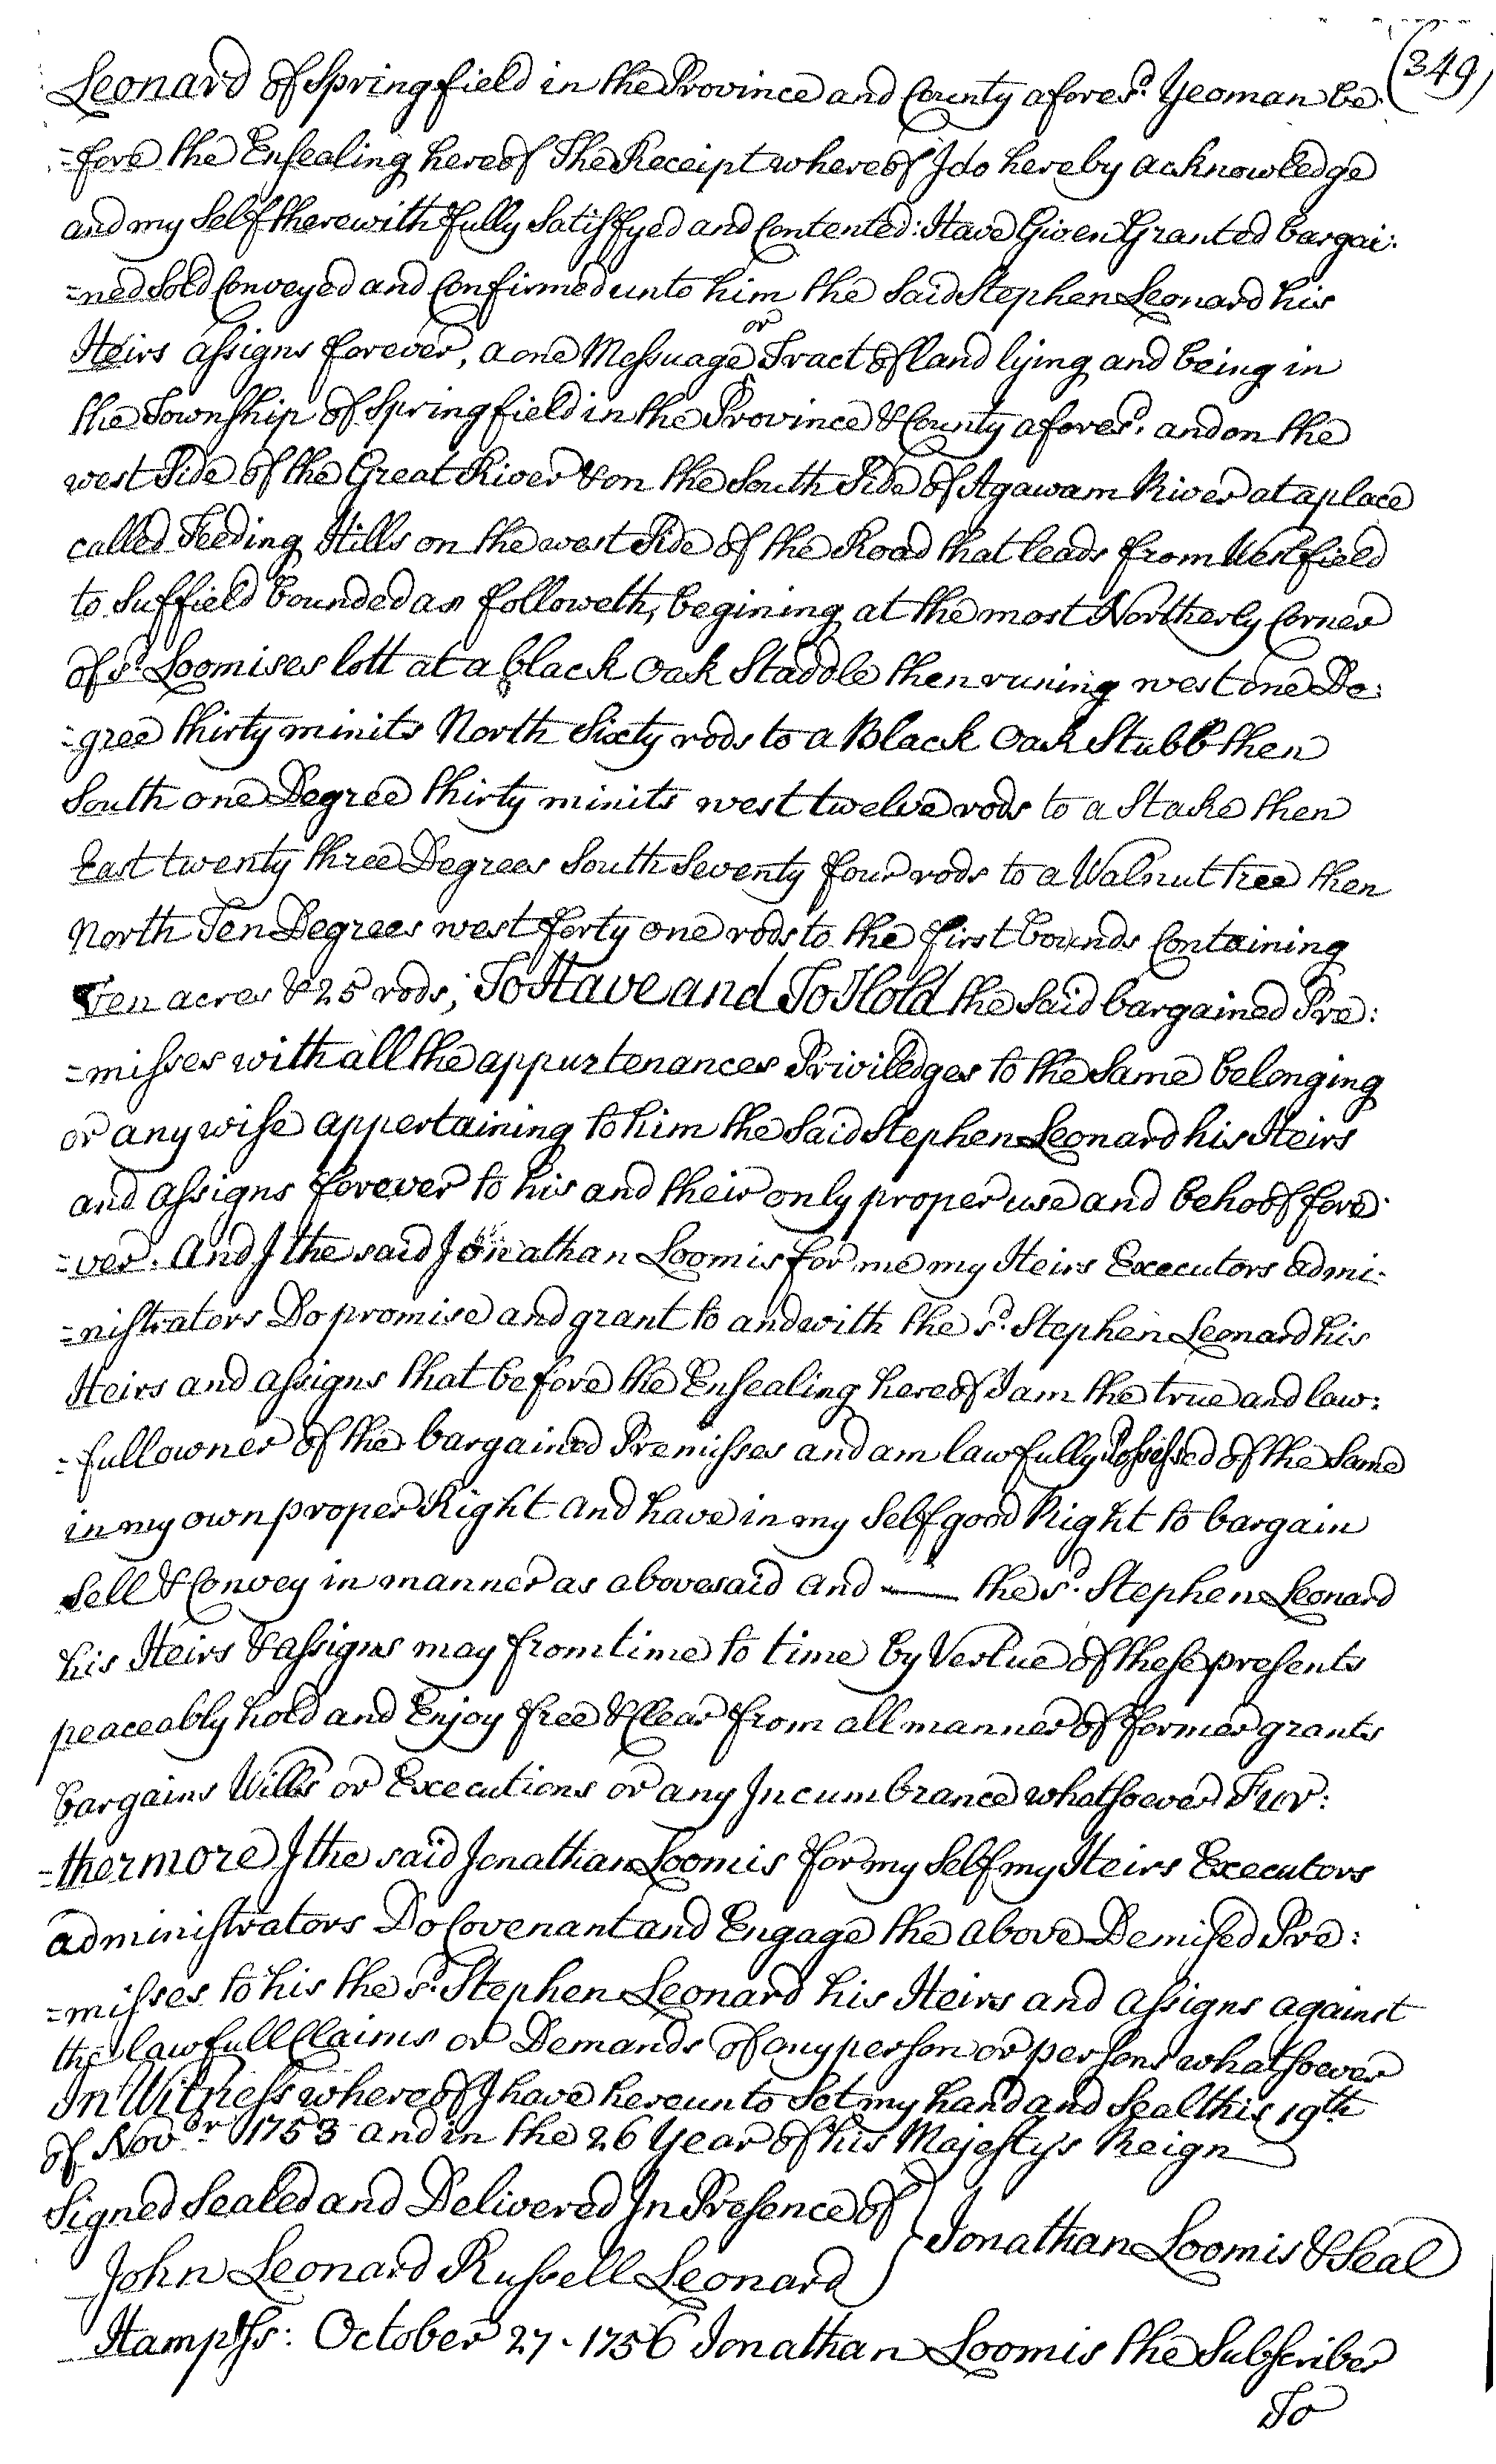 (349)
Leonard of Springfield in the Province and County afores.d Yeoman be:
=fore the Ensealing hereof The Receipt whereof I do hereby acknowledge
and my Self therewith fully Satisfyed and Contented: Have Given Granted bargai:
=ned Sold Conveyed and Confirmed unto him the Said Stephen Leonard his
or
Heirs assigns forever, a one Messuage Tract of Land lying and being in
the Township of Springfield in the Province & County afores.d, and on the
west Side of the Great River & on the South Side of Agawam River at a place
called Feeding Hills on the west Side of the Road that leads from Westfield
to Suffield bounded as followeth, begining at the most Northerly Corner
of s.d Loomises lott at a black Oak Staddle then runing west one De:
=gree thirty minits North Sixty rods to a Black Oak Stubb then
South one Degree thirty minits west twelve rods to a Stake then
East twenty three Degrees South Seventy four rods to a Walnut tree then
North Ten Degrees west forty one rods to the first bounds Containing
Ten acres & 25 rods; To Have and To Hold the Said bargained Pre:
=misses with all the appurtenances Priviledges to the Same belonging
or any wise appertaining to him the Said Stephen Leonard his Heirs
and assigns forever to his and their only proper use and behoof fore:
=ver. And I the said Jonathan Loomis for me my Heirs Executors admi:
=nistrators Do promise and grant to and with the s.d Stephen Leonard his
Heirs and assigns that before the Ensealing hereof I am the true and law:
=full owner of the bargained Premisses and am lawfully Possessed of the Same
in my own proper Right and have in my Self good Right to bargain
Sell & Convey in manner as abovesaid and —— the s.d Stephen Leonard
his Heirs & assigns may from time to time by Vertue of these presents
peaceably hold and Enjoy free & Clear from all manner of former grants
bargains Wills or Executions or any Incumbrance whatsoever Fur:
=thermore I the said Jonathan Loomis for my Self my Heirs Executors
administrators Do Covenant and Engage the above Demised Pre:
=misses to his the s.d Stephen Leonard his Heirs and assigns against
the lawfull Claims or Demands of any person or persons whatsoever
In Witness whereof I have hereunto Set my hand and Seal this 19th
of Nov.br 1753 and in the 26 Year of his Majesty's Reign
Signed Sealed and Delivered In Presence of } Jonathan Loomis & Seal
John Leonard Russell Leonard
Hampshs: October 27. 1756 Jonathan Loomis the Subscriber
To